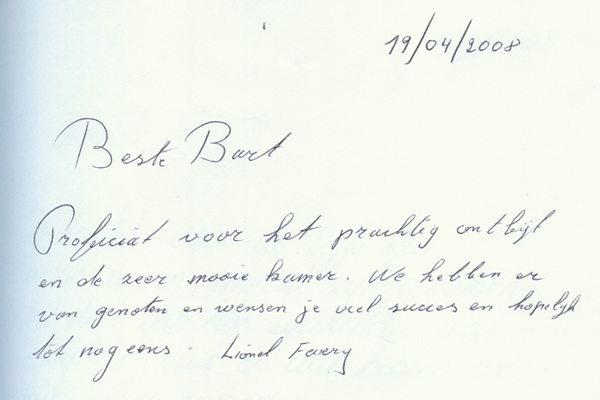 19/04/2008
Beste Bart
Proficiat voor het prachtig ontbijt
en de zeer mooie kamer. We hebben er
van genoten en wensen je veel succes en hopelijk
tot nog eens. Lionel Favery